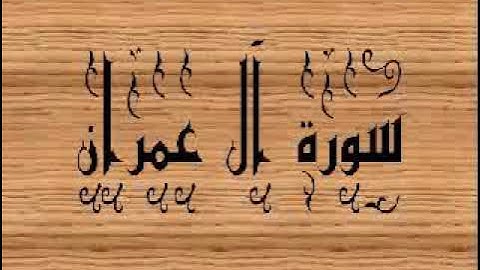 سورة آل عمران